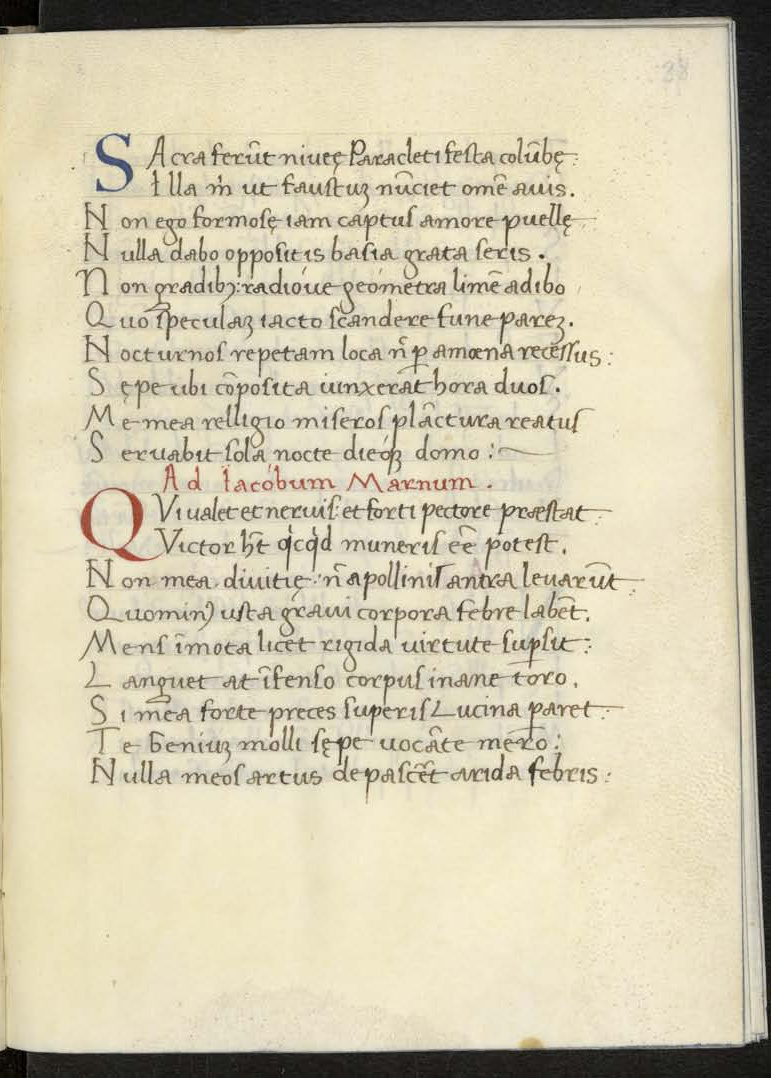 38
SAcra ferūt niueę Paracleti festa colūbę:
Illa m̄ ut faustuꝫ nūciet omē auis.
Non ego formosę iam captus amore puellę.
Nulla dabo oppositis basia grata seris.
Non gradibꝰ: radioue geometra limē adibo
Quo speculaꝫ iacto scandere fune pareꝫ.
Nocturnos repetam loca n̄ ꝑ amœna recessus:
Sępe ubi cōposita iunxerat hora duos.
Me mea relligio miseros plāctura reatus
Seruabit sola nocte dieqꝫ domo:
Ad Iacobum Marnum.
QVi ualet et neruis: et forti pectore præstat:
Victor hēt qicqid muneris eē potest.
Non mea diuitię: n̄ apollinis antra leuarūt:
Quominꝰ usta graui corpora febre labēt.
Mens īmota licet rigida uirtute suꝑsit:
Languet at īfenso corpus inane toro.
Si mea forte preces superis Lucina ꝑaret:
Te Geniuꝫ molli sępe uocāte mero:
Nulla meos artus depascēt arida febris: